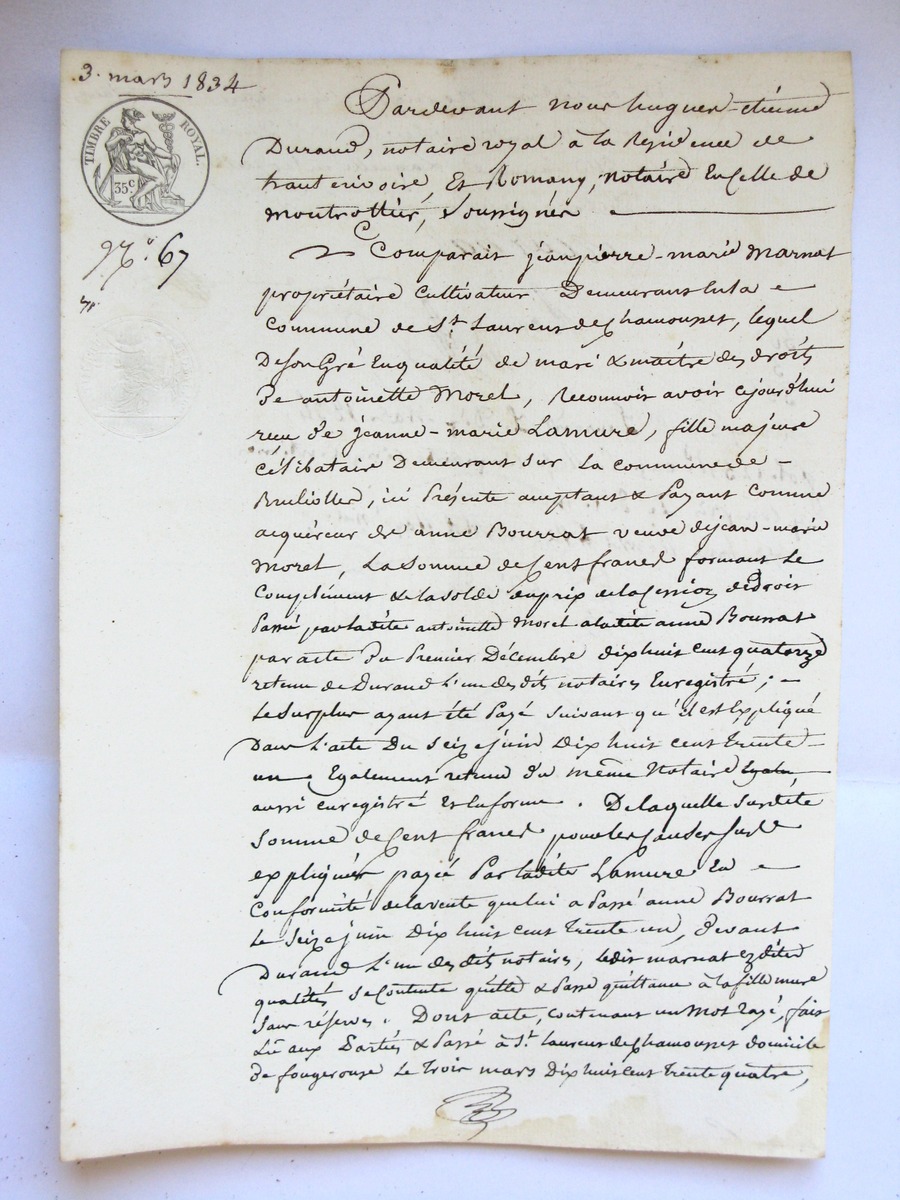 3. mars 1834
TIMBRE ROYAL.
35c.
No. 67
Pardevant nous hugues-étienne
Durand, notaire royal à la Résidence de
hauterivoire, Et Romany, notaire En Celle de
Montrottier, Soussignés
Comparait jeanpierre-marie Marnat
propriétaire Cultivateur Demeurant En la
Commune de St. Laurent de Chamousset, lequel
De Son Gré En qualité de mari & maitre des droits
De antoinette Morel, Reconnoit avoir Cejourd'hui
reçu de jeanne-marie Lamure, fille majeure
Célibataire Demeurant Sur La commune de
Brulliolles, ici Présente acceptant & Payant Comme
acquéreur de anne Bourrat veuve de jean-marie
Morel, La Somme de Cent francs formant Le
Complément & de la Solde du prix de la Cession de Droit
Passée par ladite antoinette Morel a ladite anne Bourrat
par acte du Premier Décembre dix huit Cent quatorze
retenu de Durand L'un des dits notaires Enregistré ;
Le Surplus ayant été Payé Suivant qu'il est Expliqué
Dans L'acte Du Seize juin Dix huit cent trente
un Egalement retenu du même Notaire
aussi enregistré En forme. De laquelle Susdite
Somme de Cent francs pour les Causes Sus
expliquées payée Par ladite Lamure En
Conformité de la vente que lui a Passé anne Bourrat
Le Seize juin Dix huit Cent Trente un, devant
Durand L'un des dits notaires, ledit marnat ez dites
qualités Se Contente quitte & Passe quittance à la fille mure
Sans réserve. Dont acte, contenant un Mot Rayé, fait
Lu aux Parties & Passé à St. Laurent de Chamousset domicile
de fougerouse Le Trois mars Dix huit Cent Trente quatre,